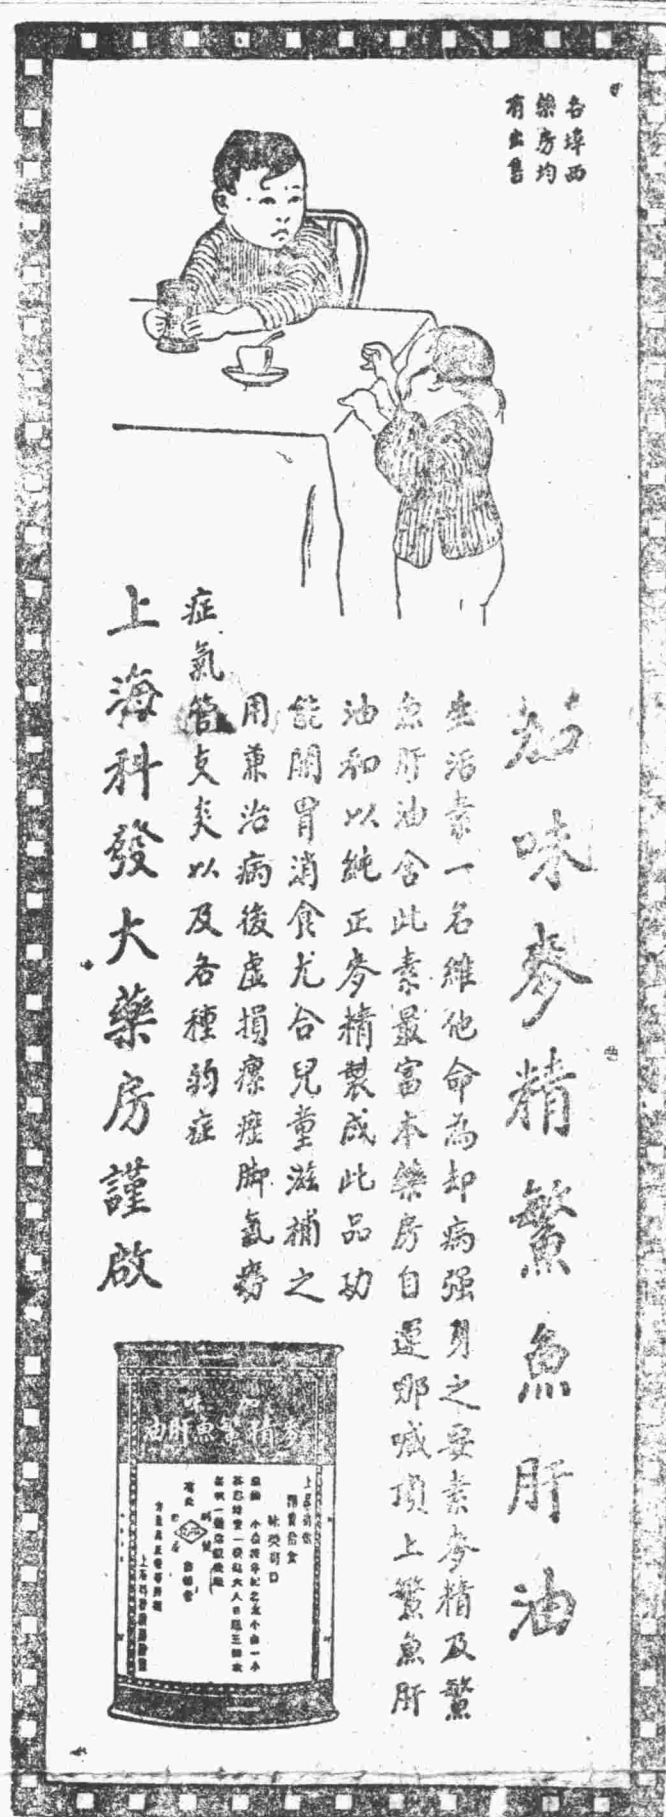 各埠西
藥房均
有出售
加味麥精鱉魚肝油
生活素一名維他命為却病強身之要素麥精及鱉
魚肝油含此素最富本藥房自運那威頂上鱉魚肝
油和以純正麥精製成此品功
能開胃消食尤合兒童滋補之
用兼治病後虛損瘰癧脚氣癆
症氣管支炎以及各種弱症
上海科發大藥房謹啟
加味
麥精鱉魚肝油